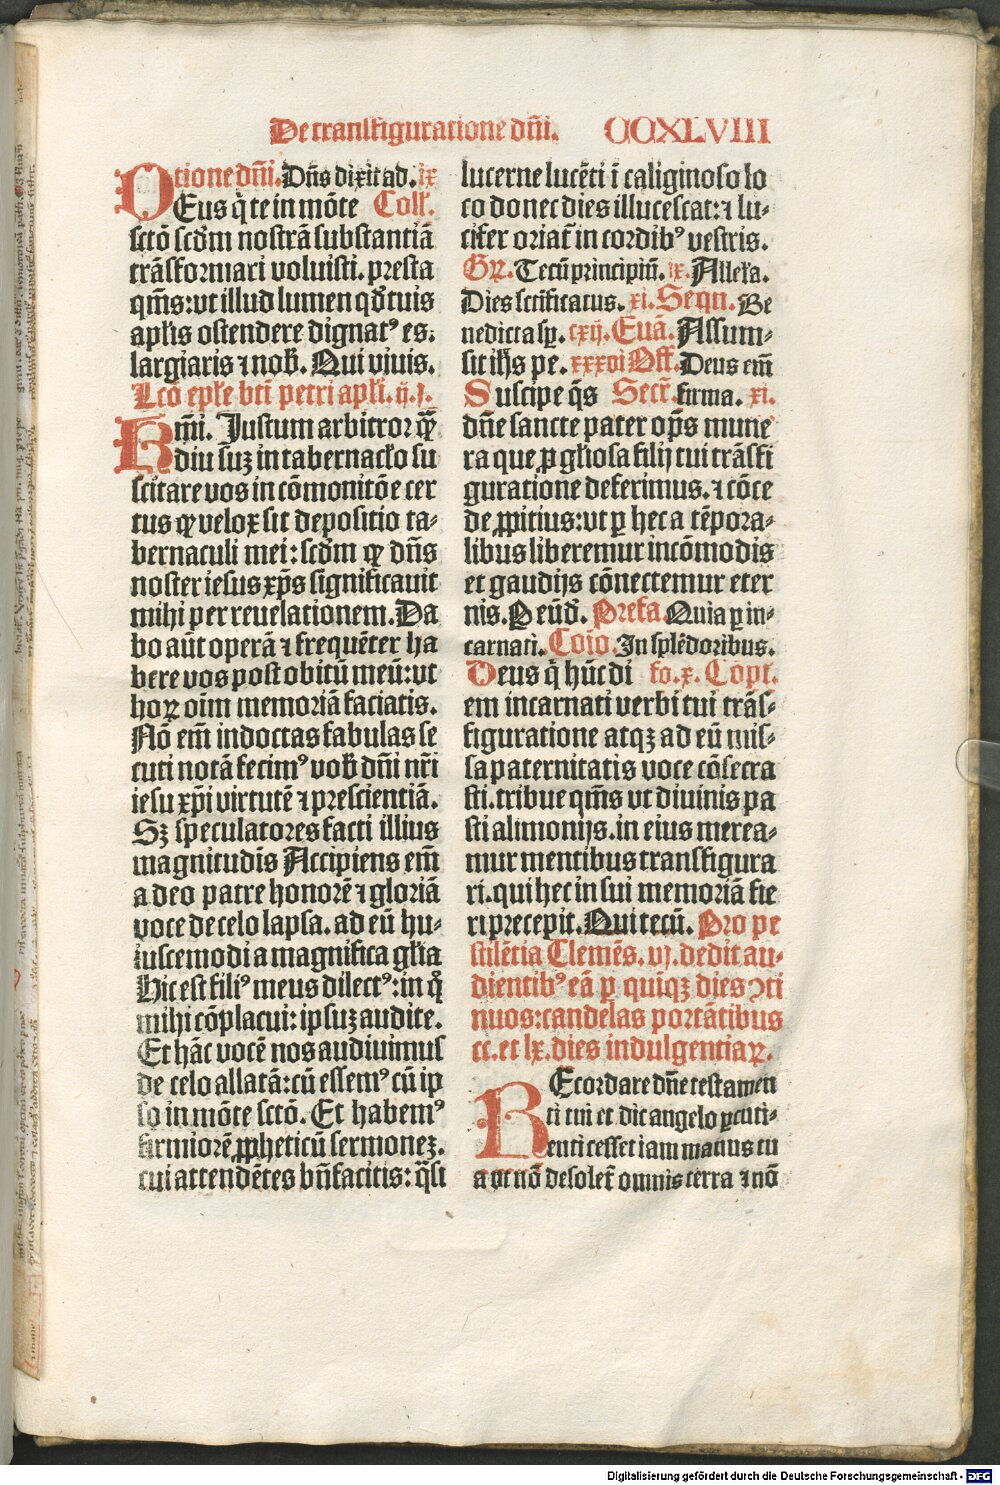 De transfiguratione dn̄i. CCXLVIII
ctione dn̄i. Dn̄s dixit ad. ix
DEus q̇ te in mōte Coll'.
sctō scd̄m nostrā substantiā
trāsformari voluisti. presta
qm̄s: vt illud lumen qd̓ tuis
apl̄is ostendere dignat⁹ es:
largiaris ⁊ nob̄. Qui viuis.
Lcō epl̄e bt̄i petri apl̄i. ij. j.
Km̄i. Justum arbitror qꝫ̄
diu suꝫ in tabernac̄lo su
scitare vos in cōmonitōe cer
tus ꝙ velox sit depositio ta-
bernaculi mei: scd̄m ꝙ dn̄s
noster iesus xp̄s significauit
mihi per reuelationem. Da
bo aūt operā ⁊ frequēter ha
bere vos post obitū meū: vt
hoꝝ oīm memoriā faciatis.
Nō em̄ indoctas fabulas se
cuti notā fecim⁹ vob̄ dn̄i nr̄i
iesu xp̄i virtutē ⁊ prescientiā.
Sꝫ speculatores facti illius
magnitudis Accipiens em̄
a deo patre honorē ⁊ gloriā
voce de celo lapsa. ad eū hu-
iuscemodi a magnifica gl̄ia
Hic est fili⁹ meus dilect⁹: in q̊
mihi cōplacui: ipsuꝫ audite.
Et hāc vocē nos audiuimus
de celo allatā: cū essem⁹ cū ip
so in mōte sctō. Et habem⁹
firmiorē ꝓpheticū sermoneꝫ.
cui attendētes bn̄ facitis: q̄si
lucerne lucēti ī caliginoso lo
co donec dies illucescat: ⁊ lu-
cifer oriat̄ in cordib⁹ vestris.
Gꝝ. Tecū principiū. ix. Allel'a.
Dies sctificatus. xi. Seqn. Be
nedicta sꝑ. cxij. Euā. Assum-
sit ih̄s pe. xxxvi Off. Deus em̄
Suscipe q̄s Secr̄. firma. xi.
dn̄e sancte pater op̄s mune
ra que ꝓ gl̄iosa filij tui trāsfi
guratione deferimus. ⁊ cōce
de ꝓpitius: vt ꝑ hec a tēpora-
libus liberemur incōmodis
et gaudijs cōnectemur eter
nis. P eūd̄. Prefa. Quia ꝑ in-
carnati. Coīo. In splēdoribus.
Deus q̇ hūc di fo. x. Cōpl'.
em incarnati verbi tui trās-
figuratione atqꝫ ad eū mis-
sa paternitatis voce cōsecra
sti. tribue qm̄s vt diuinis pa
sti alimonijs. in eius merea-
mur mentibus transfigura
ri. qui hec in sui memoriā fie
ri precepit. Qui tecū. Pro pe
stilētia Clemēs. vj. dedit au-
dientib⁹ eā ꝑ quiqꝫ dies ↄti
nuos: candelas portātibus
cc. et lx. dies indulgentiaꝝ.
REcordare dn̄e testamen
ti tui et dic angelo ꝑcuti-
enti cesset iam manus tu
a vt nō desolet̄ omnis terra ⁊ nō
Digitalisierung gefördert durch die Deutsche Forschungsgemeinschaft - DFG